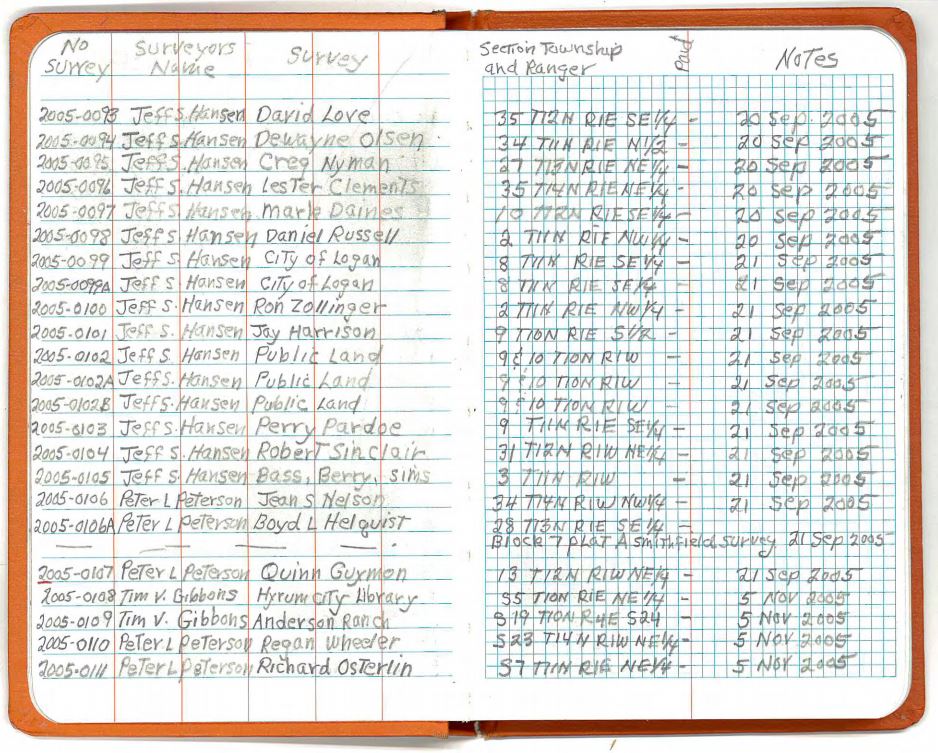 No Survey Surveyors Name Survey Section Township and Ranger Paid Notes
2005-0093 Jeff S. Hansen David Love 35 T12N R1E SE1/4 - 20 Sep 2005
2005-0094 Jeff S. Hansen Dewayne Olsen 34 T11N R1E N1/2 - 20 Sep 2005
2005-0095 Jeff S. Hansen Creg Nyman 27 T13N R1E NE1/4 - 20 Sep 2005
2005-0096 Jeff S. Hansen Lester Clements 35 T14N R1E NE1/4 - 20 Sep 2005
2005-0097 Jeff S. Hansen Mark Daines 10 T12N R1E SE1/4 - 20 Sep 2005
2005-0098 Jeff S. Hansen Daniel Russell 2 T11N R1E NW1/4 - 20 Sep 2005
2005-0099 Jeff S. Hansen City of Logan 8 T11N R1E SE1/4 - 21 Sep 2005
2005-0099A Jeff S Hansen City of Logan 8 T11N R1E SE1/4 - 21 Sep 2005
2005-0100 Jeff S. Hansen Ron Zollinger 2 T11N R1E NW1/4 - 21 Sep 2005
2005-0101 Jeff S. Hansen Jay Harrison 9 T10N R1E S1/2 - 21 Sep 2005
2005-0102 Jeff S. Hansen Public Land 9 & 10 T10N R1W - 21 Sep 2005
2005-0102A Jeff S. Hansen Public Land 9 & 10 T10N R1W - 21 Sep 2005
2005-0102B Jeff S. Hansen Public Land 9 & 10 T10N R1W - 21 Sep 2005
2005-0103 Jeff S. Hansen Perry Pardoe 9 T11N R1E SE1/4 - 21 Sep 2005
2005-0104 Jeff S. Hansen Robert Sinclair 31 T12N R1W NE1/4 - 21 Sep 2005
2005-0105 Jeff S. Hansen Bass, Berry, Sims 3 T11N R1W - 21 Sep 2005
2005-0106 Peter L Peterson Jean S Nelson 34 T14N R1W NW1/4 - 21 Sep 2005
2005-0106A Peter L Peterson Boyd L Helquist 28 T13N R1E SE1/4 -
Block 7 plat A smithfield survey 21 Sep 2005
2005-0107 Peter L Peterson Quinn Guymon 13 T12N R1W NE1/4 - 21 Sep 2005
2005-0108 Tim V. Gibbons Hyrum City Library S5 T10N R1E NE1/4 - 5 Nov 2005
2005-0109 Tim V. Gibbons Anderson Ranch S19 T10N R4E S24 - 5 Nov 2005
2005-0110 Peter L Peterson Regan Wheeler S23 T14N R1W NE1/4 - 5 Nov 2005
2005-0111 Peter L Peterson Richard Osterlin S7 T11N R1E NE1/4 - 5 Nov 2005